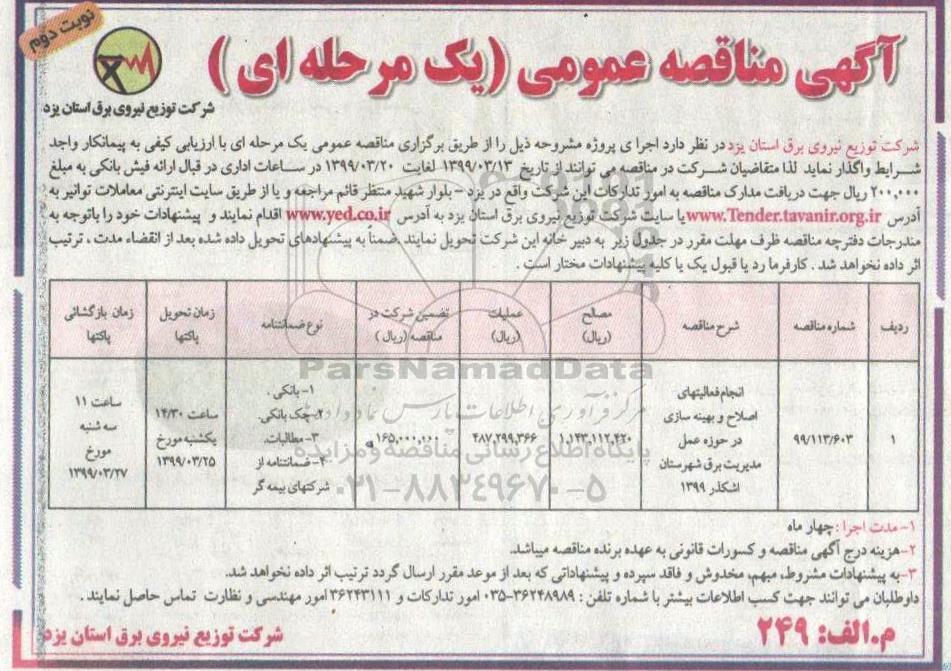 نوبت دوم
آگهی مناقصه عمومی (یک مرحله ای)
شرکت توزیع نیروی برق استان یزد
شرکت توزیع نیروی برق استان یزد در نظر دارد اجرا ی پروژه مشروحه ذیل را از طریق برگزاری مناقصه عمومی یک مرحله ای با ارزیابی کیفی به پیمانکار واجد
شرایط واگذار نماید لذا متقاضیان شرکت در مناقصه می توانند از تاریخ ۱۳۹۹/۰۳/۱۳ لغایت ۱۳۹۹/۰۳/۲۰ در ساعات اداری در قبال ارائه فیش بانکی به مبلغ
۲۰۰,۰۰۰ ریال جهت دریافت مدارک مناقصه به امور تدارکات این شرکت واقع در یزد - بلوار شهید منتظر قائم مراجعه و یا از طریق سایت اینترنتی معاملات توانیر به
آدرس www.Tender.tavanir.org.ir یا سایت شرکت توزیع نیروی برق استان یزد به آدرس www.yed.co.ir اقدام نمایند و پیشنهادات خود را باتوجه به
مندرجات دفترچه مناقصه ظرف مهلت مقرر در جدول زیر به دبیر خانه این شرکت تحویل نمایند .ضمناً به پیشنهادهای تحویل داده شده بعد از انقضاء مدت ، ترتیب
اثر داده نخواهد شد . کارفرما رد یا قبول یک یا کلیه پیشنهادات مختار است .
ردیف
شماره مناقصه
شرح مناقصه
مصالح
(ریال)
عملیات
(ریال)
تضمین شرکت در
مناقصه (ریال)
نوع ضمانتنامه
زمان تحویل
پاکتها
زمان بازگشائی
پاکتها
۱
۹۹/۱۱۳/۶۰۳
انجام فعالیتهای
اصلاح و بهینه سازی
در حوزه عمل
مدیریت برق شهرستان
اشکذر ۱۳۹۹
۱,۱۴۳,۱۱۲,۴۲۰
۴۸۷,۲۹۹,۳۶۶
۱۶۵,۰۰۰,۰۰۰
۱- بانکی .
۲-چک بانکی.
۳- مطالبات.
۴- ضمانتنامه از
شرکتهای بیمه گر
ساعت ۱۴/۳۰
یکشنبه مورخ
۱۳۹۹/۰۳/۲۵
ساعت ۱۱
سه شنبه
مورخ
۱۳۹۹/۰۳/۲۷
ParsNamadData
مرکز فرآوری اطلاعات پارس نماد داده ها
پایگاه اطلاع رسانی مناقصه و مزایده
۰۲۱-۸۸۳۴۹۶۷۰-۵
۱- مدت اجرا : چهار ماه
۲-هزینه درج آگهی مناقصه و کسورات قانونی به عهده برنده مناقصه میباشد.
۳-به پیشنهادات مشروط، مبهم، مخدوش و فاقد سپرده و پیشنهاداتی که بعد از موعد مقرر ارسال گردد ترتیب اثر داده نخواهد شد.
داوطلبان می توانند جهت کسب اطلاعات بیشتر با شماره تلفن : ۳۶۲۴۸۹۸۹-۰۳۵ امور تدارکات و ۳۶۲۴۳۱۱۱ امور مهندسی و نظارت تماس حاصل نمایند .
م.الف: ۲۴۹
شرکت توزیع نیروی برق استان یزد